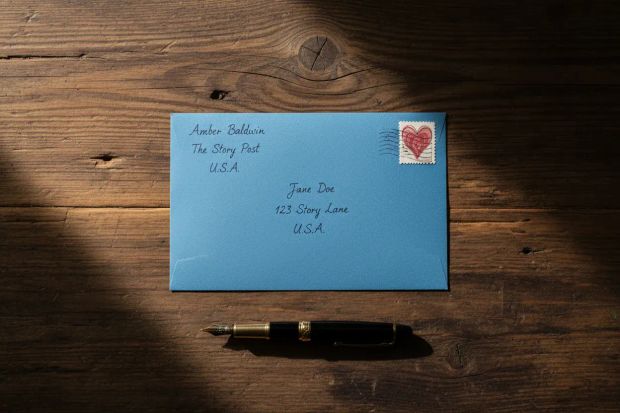 Amber Baldwin
The Story Post
U.S.A.
Jane Doe
123 Story Lane
U.S.A.